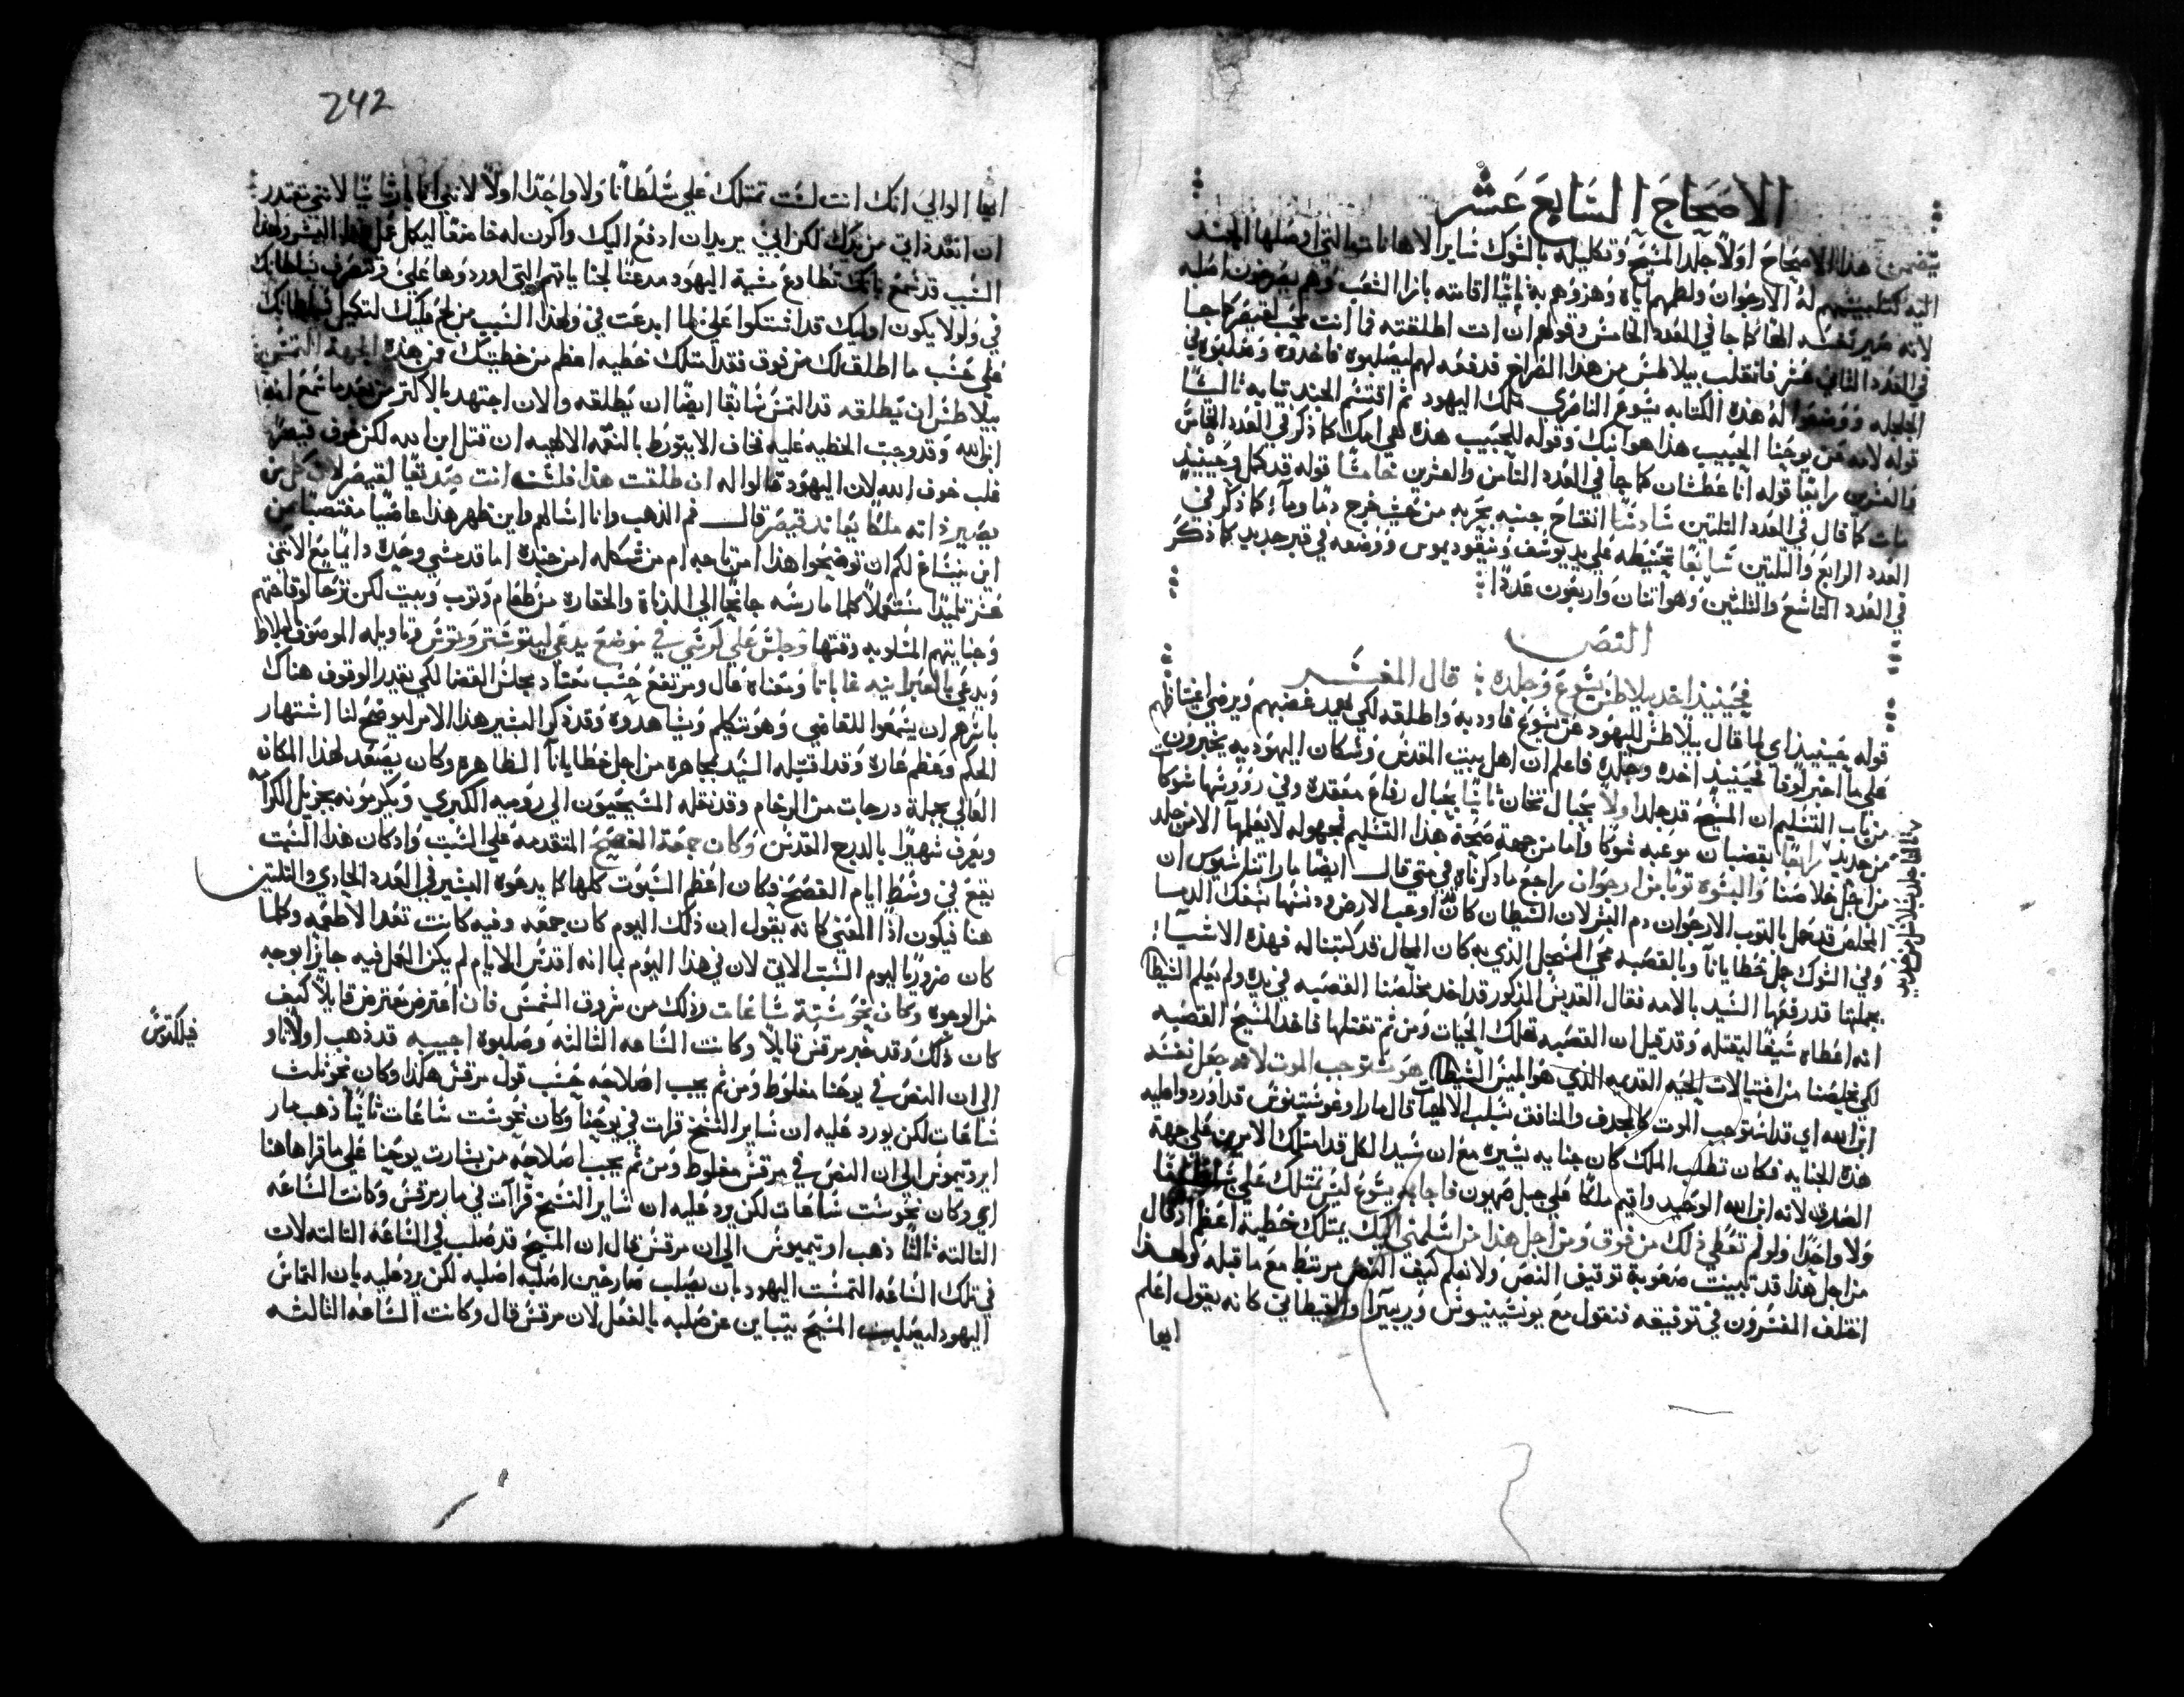 الاصحاح السابع عشر
يتضمن هذا الاصحاح اولاً جلد المسيح وتكليله بالشوك وساير الاهانات التي اوصلها الجند
اليه كتلبيسهم له الارجوان ولطمهم اياه وهزؤهم به ثانيًا اقامته بازا الشعب وهم يصرخون اصلبه
لانه صير نفسه الهًا كما جا في العدد الخامس وقولهم ان انت اطلقته فما انت محب لقيصر كما جا
في العدد الثاني عشر فانقلب بيلاطس من هذا الصراخ فدفعه لهم ليصلبوه فاخذوه وصلبوه في
الجلجله ووضعوا له هذه الكتابه يسوع الناصري ملك اليهود ثم اقتسم الجند ثيابه ثالثًا
قوله لامه عن يوحنا الحبيب هذا هو ابنك وقوله للحبيب هذه هي امك كما ذكر في العدد الخامس
والعشرين رابعًا قوله انا عطشان كما جا في العدد الثامن والعشرين خامسًا قوله قد كمل وحينيذٍ
مات كما قال في العدد الثلثين سادسًا انفتاح جنبه بحربه من حيث خرج دمًا وماءً كما ذكر في
العدد الرابع والثلثين سابعًا تحنيطه علي يد يوسف ونيقوديموس ووضعه في قبر جديد كما ذكر
في العدد التاسع والثلثين وهو اثنان واربعون عددًا
النص
فحينيذ اخذ بيلاطس يسوع وجلده : قال المفسر
قوله حينيذ اي لما قال بيلاطس لليهود عن يسوع فاودبه واطلقه لكي يهدد غضبهم ويرضي اغتياظهم
علي ما اخبر لوقا فحينيذ اخذه وجلده فاعلم ان اهل بيت القدس وسكان اليهوديه يخبرون
من باب التسليم ان المسيح قد جلد اولاً بحبال ثخان ثانيًا بحبال رفاع معقده وفي رؤوسها شوكًا
من حديد رابعًا بقضبان موعبه شوكًا واما من جهة صحة هذا التسليم فمجهوله لا يعلمها الا من جلد
من اجل خلاصنا والبسوه ثوبًا من ارجوان راجع ما ذكرناه في متي قال ايضًا مار اتناسيوس ان
المخلص قد حمل بالثوب الارجوان دم البشر لان الشيطان كان اوعب الارض ودنسها بسفك الدما
وفي الشوك حمل خطايانا وبالقصبه محي السجل الذي به كان المحال قد كتبنا له فهذه الاشيا
بجملتها قد رفعها السيد بالامه فقال القديس المذكور قد اخذ مخلصنا القصبه في يده ولم يعلم الشيطا
انه اعطاه سيفًا ليقتله وقد قيل ان القصبه تهلك الحيات ومن ثم تقتلها فاخذ المسيح القصبه
لكي يخلصنا من اغتيالات الحيه القديمه الذي هو ابليس الشيطا هو مستوجب الموت لانه جعل نفسه
ابن الله اي قد استوجب الموت كالمجدف والمنافق بسلب الالهيات قال مار اوغوستينوس قد اوردوا عليه
هذه الجنايه فكان تطلب الملك كان جنايه يسيره مع ان سيد الكل قد امتلك الامرين علي جهة
الصدق لانه ابن الله الوحيد واقيم ملكًا علي جبل صهيون فاجابه يسوع ليس تمتلك علي سلطانًا
ولا واحدًا ولو لم تعطي ذلك من فوق ومن اجل هذا من اسلمني اليك يمتلك خطية اعظم اذ قال
من اجل هذا قد تبينت صعوبة توقيف النص ولا نعلم كيف النص مرتبط مع ما قبله ولهذا
اختلف المفسرون في توفيقه فنقول مع يونسينيوس وريبيرا والقيطاني كانه يقول اعلم
ايها
242
ايها الوالي انك انت لست تمتلك علي سلطانًا ولا واحدًا اولاً لانني انا بار ثانيًا لانني مقتدر
ان انقذ ذاتي من يدك لكن ابي يريد ان ادفع اليك واكون له خاضعًا ليكمل خلاص البشر ولهذا
السبب قد سمح بانك تطاوع مشية اليهود مدعنًا لجناياتهم التي اوردوها علي وتتصرف بسلطانك
في ولولا يكون اوليك قد اشتكوا علي لما ابدعت في ولهذا السبب من لم فليك لتكيل سلطانك
علي حسب ما اطلق لك من فوق فقد امتلك خطيه اعظم من خطيتك فمن هذه الجهة التمس
بيلاطس ان يطلقه قد التمس سابقًا ايضًا ان يطلقه والان اجتهد بالاكثر من بعد ما سمع انه
ابن الله وقد وجبت الخطيه عليه فخاف الا يتورط بالنقمه الالهيه ان قتل ابن الله لكن خوف قيصر
غلب خوف الله لان اليهود قالوا له ان طلقت هذا فلست انت صديقًا لقيصر لان كل من
يصير ذاته ملكًا يعاند قيصر قال فم الذهب وانا اسالهم واين ظهر هذا عاصيًا مغتصبًا من
اين ينساغ لكم ان توضحوا هذا امن تاجه ام من شكله امن جنده اما قد مشي وحده دايمًا مع الاثني
عشر تلميذًا مستعملاً كلما مارسه جانحًا الي الدناة والحقاره من طعام وثوب وبيت لكن نزحًا لوقاحتهم
وجنايتهم المشاوبه وقتها وجلس علي كرسي في موضع يدعي ليتوستروتوس وتاويله الموصوف بالبلاط
ويدعي بالعبرانيه غاباتا ومعناه عال ومرتفع حسب معتاد مجلس القضا لكي يقدر الوقوف هناك
باسرهم ان يسمعوا للقاضي وهو يتكلم ويشاهدوه وقد ذكر البشير هذا الامر ليوضح لنا اشتهار
الحكم وعظم عاره وقد اقتبله السيد مجاهره من اجل خطايانا الظاهره وكان يصعد لهذا المكان
العالي بجملة درجات من الرخام وقد نقله المسيحيون الي روميه الكبري ويكرمونه بجزيل الكرامه
ويعرف شهيرًا بالدرج المقدس وكان جمعة الفصح المتقدمه علي السبت واذ كان هذا السبت
يقع في وسط ايام الفصح فكان اعظم السبوت كلها كما يدعوه البشير في العدد الحادي والثلثين
هنا فيكون اذًا المعني كانه يقول ان ذلك اليوم كان جمعه وفيه كانت تعد الاطعمه وكلما
كان ضروريًا ليوم السبت الاتي لان في هذا اليوم بما انه اقدس الايام لم يكن العمل فيه جايزًا بوجه
من الوجوه وكان نحو ستة ساعات وذلك من شروق الشمس فان اعترض معترض قايلاً كيف
كان ذلك وقد خبر مرقس قايلاً وكانت الساعه الثالثه وصلبوه اجيبه قد ذهب اولاً ناو
فيلكتوس
الي ان النص في يوحنا مغلوط ومن ثم يجب اصلاحه حسب قول مرقس هكذا وكان نحو ثلث
ساعات لكن يورد عليه ان ساير النسخ قرات في يوحنا وكان نحو ست ساعات ثانيًا ذهب مار
ايرونيموس الي ان النص في مرقس مغلوط ومن ثم يجب اصلاحه من بشارت يوحنا علي ما قراها هنا
اي وكان نحو ست ساعات لكن يرد عليه ان ساير النسخ قرات في مار مرقس وكانت الساعه
الثالثه ثالثًا ذهب اوتيميوس الي ان مرقس قال ان المسيح قد صلب في الساعة الثالثه لان
في تلك الساعه التمست اليهود بان يصلب صارخين اصلبه اصلبه لكن يرد عليه بان التماس
اليهود ليصلب المسيح يتباين عن صلبه بالفعل لان مرقس قال وكانت الساعه الثالثه